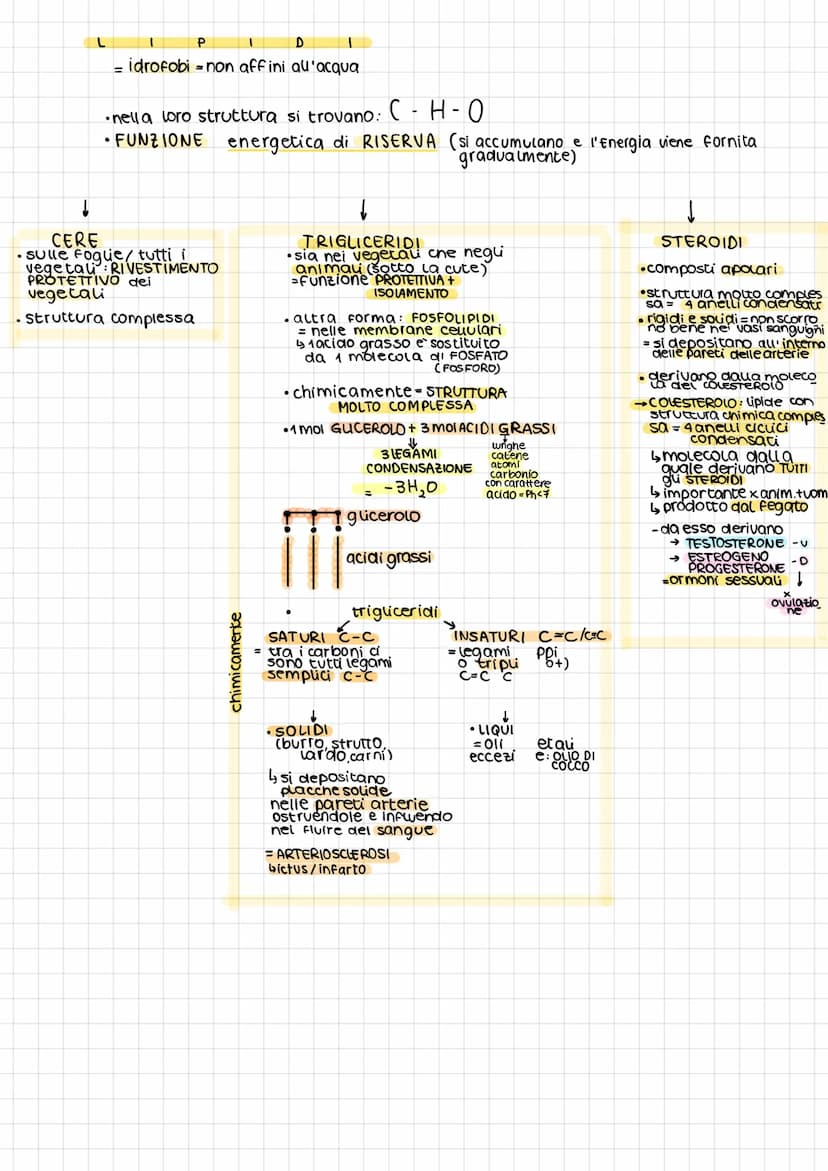 L I P I D I
= idrofobi = non affini all'acqua
• nella loro struttura si trovano: C - H - O
• FUNZIONE energetica di RISERVA (si accumulano e l'Energia viene fornita
gradualmente)
CERE
• sulle foglie/ tutti i
vegetali : RIVESTIMENTO
PROTETTIVO dei
vegetali
• struttura complessa
TRIGLICERIDI
• sia nei vegetali che negli
animali (sotto la cute)
= funzione PROTETTIVA +
ISOLAMENTO
• altra forma: FOSFOLIPIDI
= nelle membrane cellulari
↳ 1 acido grasso è sostituito
da 1 molecola di FOSFATO
(FOSFORO)
• chimicamente = STRUTTURA
MOLTO COMPLESSA
• 1 mol GLICEROLO + 3 mol ACIDI GRASSI
3 LEGAMI
CONDENSAZIONE
= - 3H₂O
lunghe
catene
atomi
carbonio
con carattere
acido = Ph<7
glicerolo
acidi grassi
•
trigliceridi
chimicamente
SATURI C-C
= tra i carboni ci
sono tutti legami
semplici C-C
• SOLIDI
(burro, strutto,
lardo, carni)
↳ si depositano
placche solide
nelle pareti arterie
ostruendole e influendo
nel fluire del sangue
= ARTERIOSCLEROSI
↳ ictus/infarto
INSATURI C=C/C≡C
= legami ppi
o tripli o+)
C=C C
• LIQUI
= oli etali
eccezi e: OLIO DI
COCCO
STEROIDI
• composti apolari
• struttura molto comples
sa = 4 anelli condensati
• rigidi e solidi = non scorro
no bene nei vasi sanguigni
= si depositano all'interno
delle pareti delle arterie
• derivano dalla moleco
la del COLESTEROLO
→ COLESTEROLO : lipide con
struttura chimica comples
sa = 4 anelli ciclici
condensati
↳ molecola dalla
quale derivano TUTTI
gli STEROIDI
↳ importante x anim. + uom
↳ prodotto dal fegato
- da esso derivano
→ TESTOSTERONE - U
→ ESTROGENO
PROGESTERONE - D
= ormoni sessuali
x
ovulazio
ne